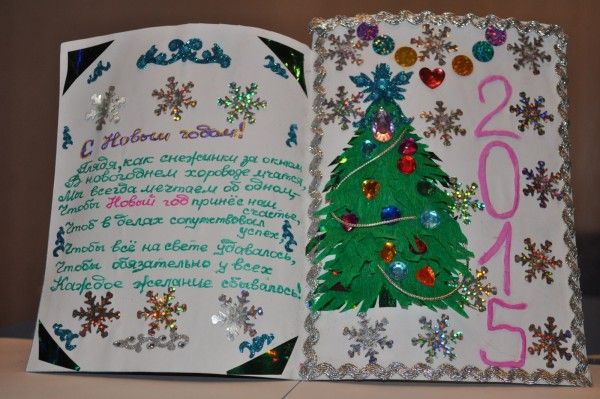 С Новым годом!
Глядя, как снежинки за окном
В новогоднем хороводе мчатся,
Мы всегда мечтаем об одном,
Чтобы Новый год принёс нам
счастье,
Чтоб в делах сопутствовал
успех,
Чтобы всё на свете удавалось,
Чтобы обязательно у всех
Каждое желание сбывалось!
2015